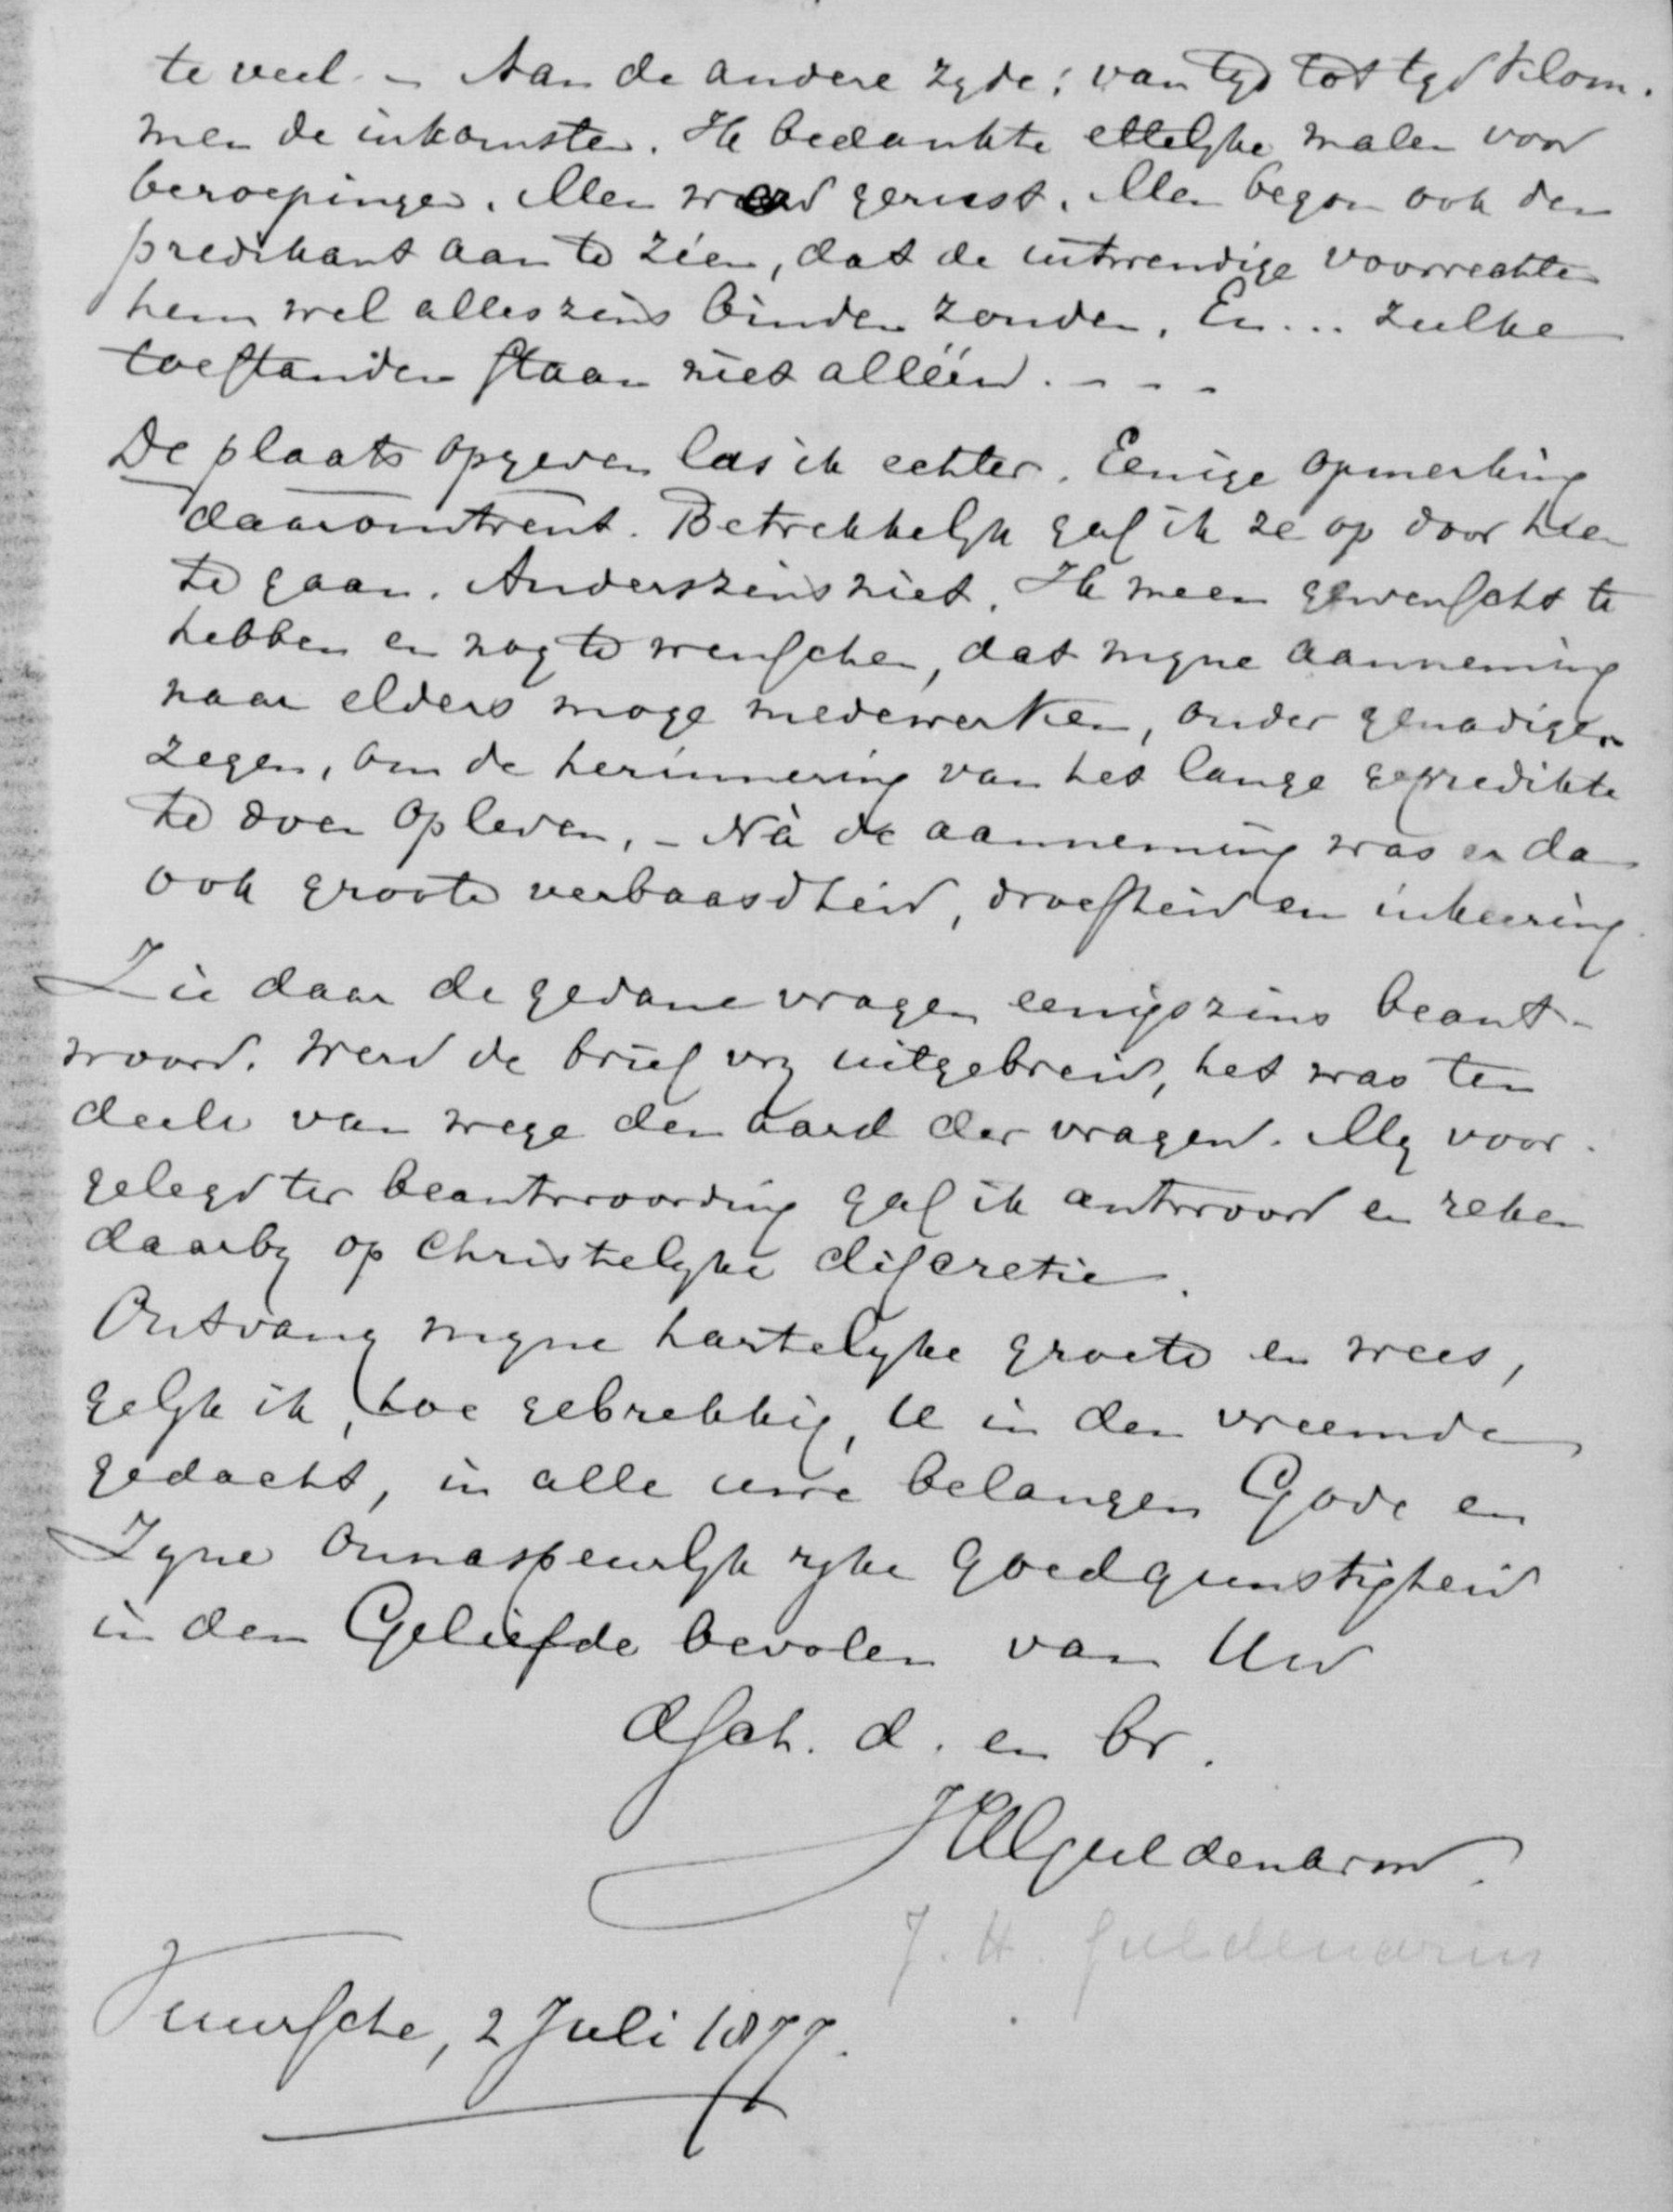 te veel. – Aan de andere zyde; van tyd tot tyd klom-
men de inkomsten. Ik bedankte ettelyke malen voor
beroepingen. Men werd gerust. Men begon ook den
predikant aan te zien, dat de uitwendige voorrechten
hem wel alleszins binden zouden. En... zulke
toestanden staan niet alléén. - - -
De plaats opgeven las ik echter. Eenige opmerking
daaromtrent. Betrekkelyk gaf ik ze op door heen
te gaan. Anderszins niet. Ik meen gewenscht te
hebben en nog te wenschen, dat myne aanneming
naar elders moge medewerken, onder genadigen
zegen, om de herinnering van het lange gepredikte
te doen opleven. – Nà de aanneming was er dan
ook groote verbaasdheid, droefheid en inkeering.
Zie daar de gedane vragen eenigszins beant-
woord. Werd de brief vry uitgebreid, het was ten
deele van wege den aard der vragen. My voor-
gelegd ter beantwoording gaf ik antwoord en reken
daarby op Christelyke discretie.
Ontvang myne hartelyke groete en wees,
gelyk ik, hoe gebrekkig, U in den vreemde
gedacht, in alle uwe belangen Gode en
Zyne onnaspeurlyk ryke goedgunstigheid
in den Geliefde bevolen van Uw
dsch. d. en br.
JHGuldenarm.
J. H. Guldenarm
Vuursche, 2 Juli 1877.